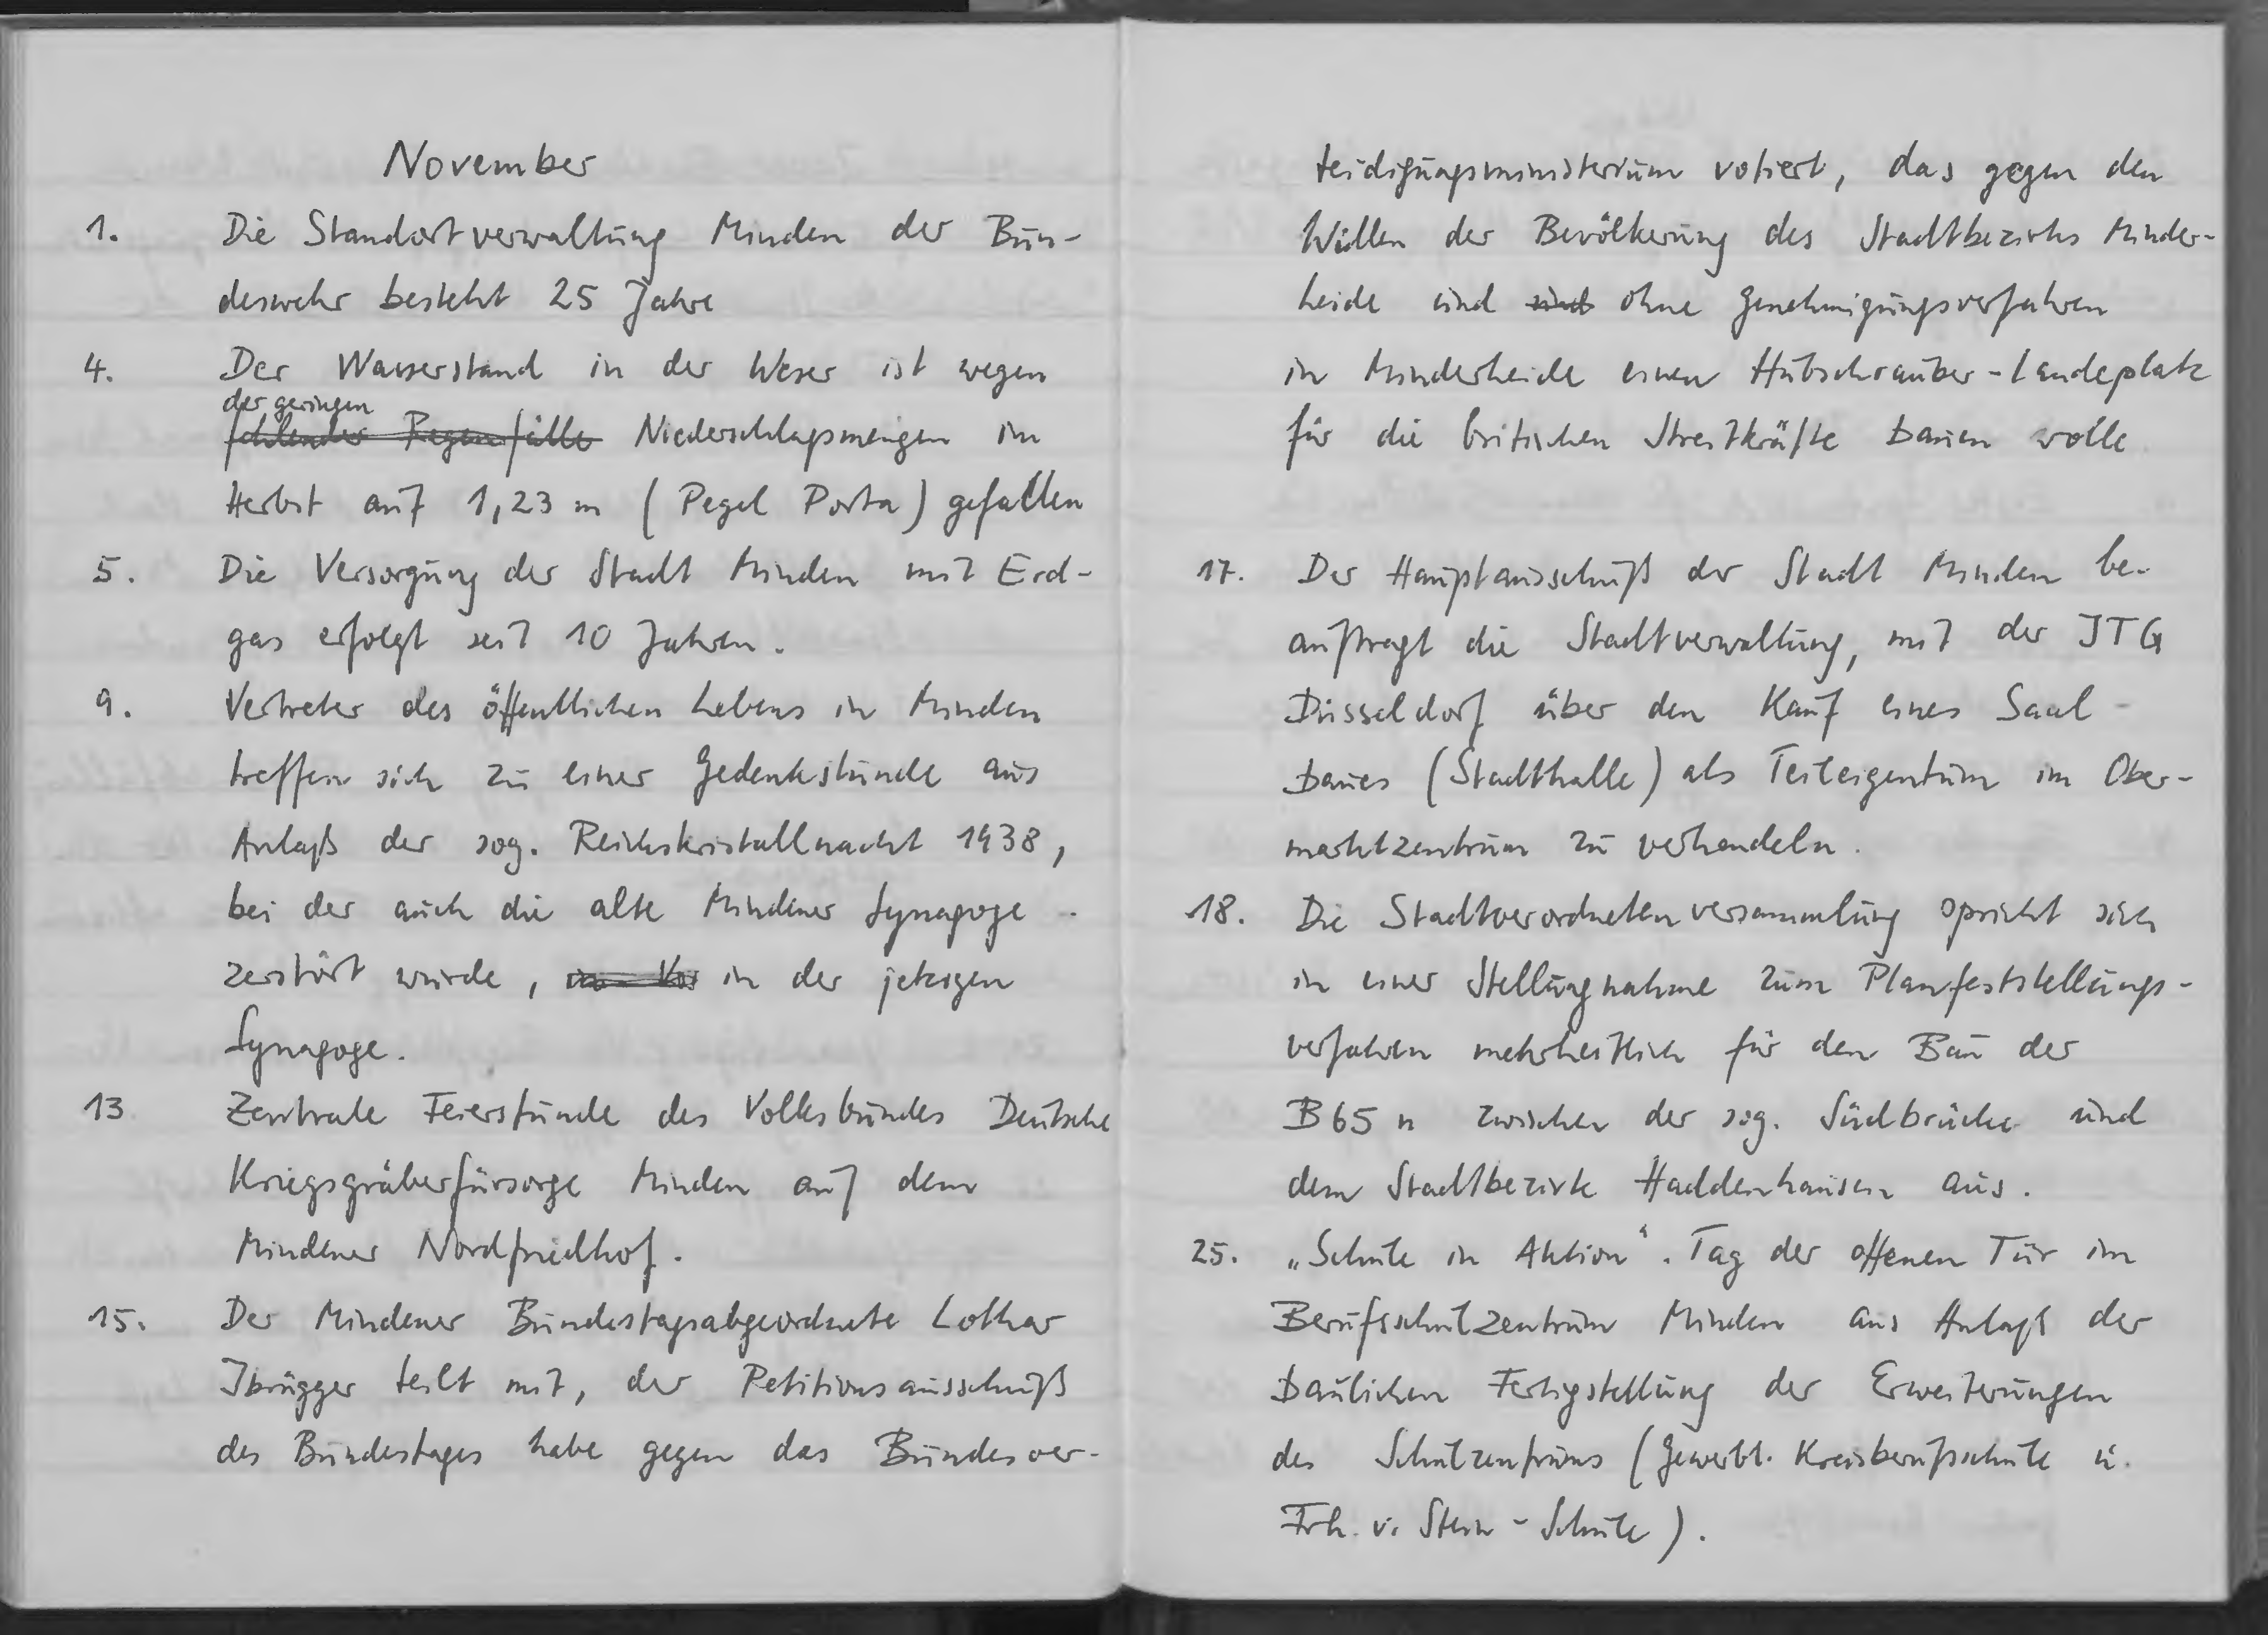 November
1. Die Standortverwaltung Minden der Bun-
deswehr besteht 25 Jahre
4. Der Wasserstand in der Weser ist wegen
der geringen
fehlender Regenfälle Niederschlagsmengen im
Herbst auf 1,23 m (Pegel Porta) gefallen
5. Die Versorgung der Stadt Minden mit Erd-
gas erfolgt seit 10 Jahren.
9. Vertreter des öffentlichen Lebens in Minden
treffen sich zu einer Gedenkstunde aus
Anlaß der sog. Reichskristallnacht 1938,
bei der auch die alte Mindener Synagoge
zerstört wurde, im Vor in der jetzigen
Synagoge.
13 Zentrale Feierstunde des Volksbundes Deutsche
Kriegsgräberfürsorge Minden auf dem
Mindener Nordfriedhof.
15. Der Mindener Bundestagsabgeordnete Lothar
Ibrügger teilt mit, der Petitionsausschuß
des Bundestages habe gegen das Bundesver-
teidigungsministerium votiert, das gegen den
Willen der Bevölkerung des Stadtbezirks Minder-
heide und und ohne Genehmigungsverfahren
in Minderheide einen Hubschrauber-Landeplatz
für die britischen Streitkräfte bauen wolle
17. Der Hauptausschuß der Stadt Minden be-
auftragt die Stadtverwaltung, mit der ITG
Düsseldorf über den Kauf eines Saal-
baues (Stadthalle) als Teileigentum im Ober-
marktzentrum zu verhandeln.
18. Die Stadtverordnetenversammlung spricht sich
in einer Stellungnahme zum Planfeststellungs-
verfahren mehrheitlich für den Bau der
B65 n zwischen der sog. Südbrücke und
dem Stadtbezirk Haddenhausen aus.
25. „Schule in Aktion“. Tag der offenen Tür im
Berufsschulzentrum Minden aus Anlaß der
baulichen Fertigstellung der Erweiterungen
des Schulzentrums (Gewerbl. Kreisberufsschule u.
Frh. v. Stein-Schule).